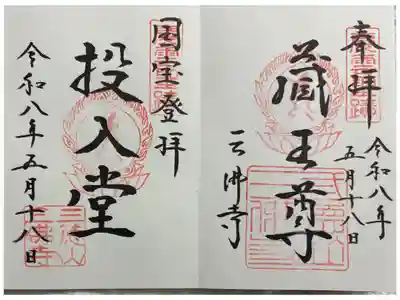 奉拝
令和八年
五月十八日
蔵王尊
三佛寺
国宝登拝
投入堂
令和八年五月十八日
三徳山